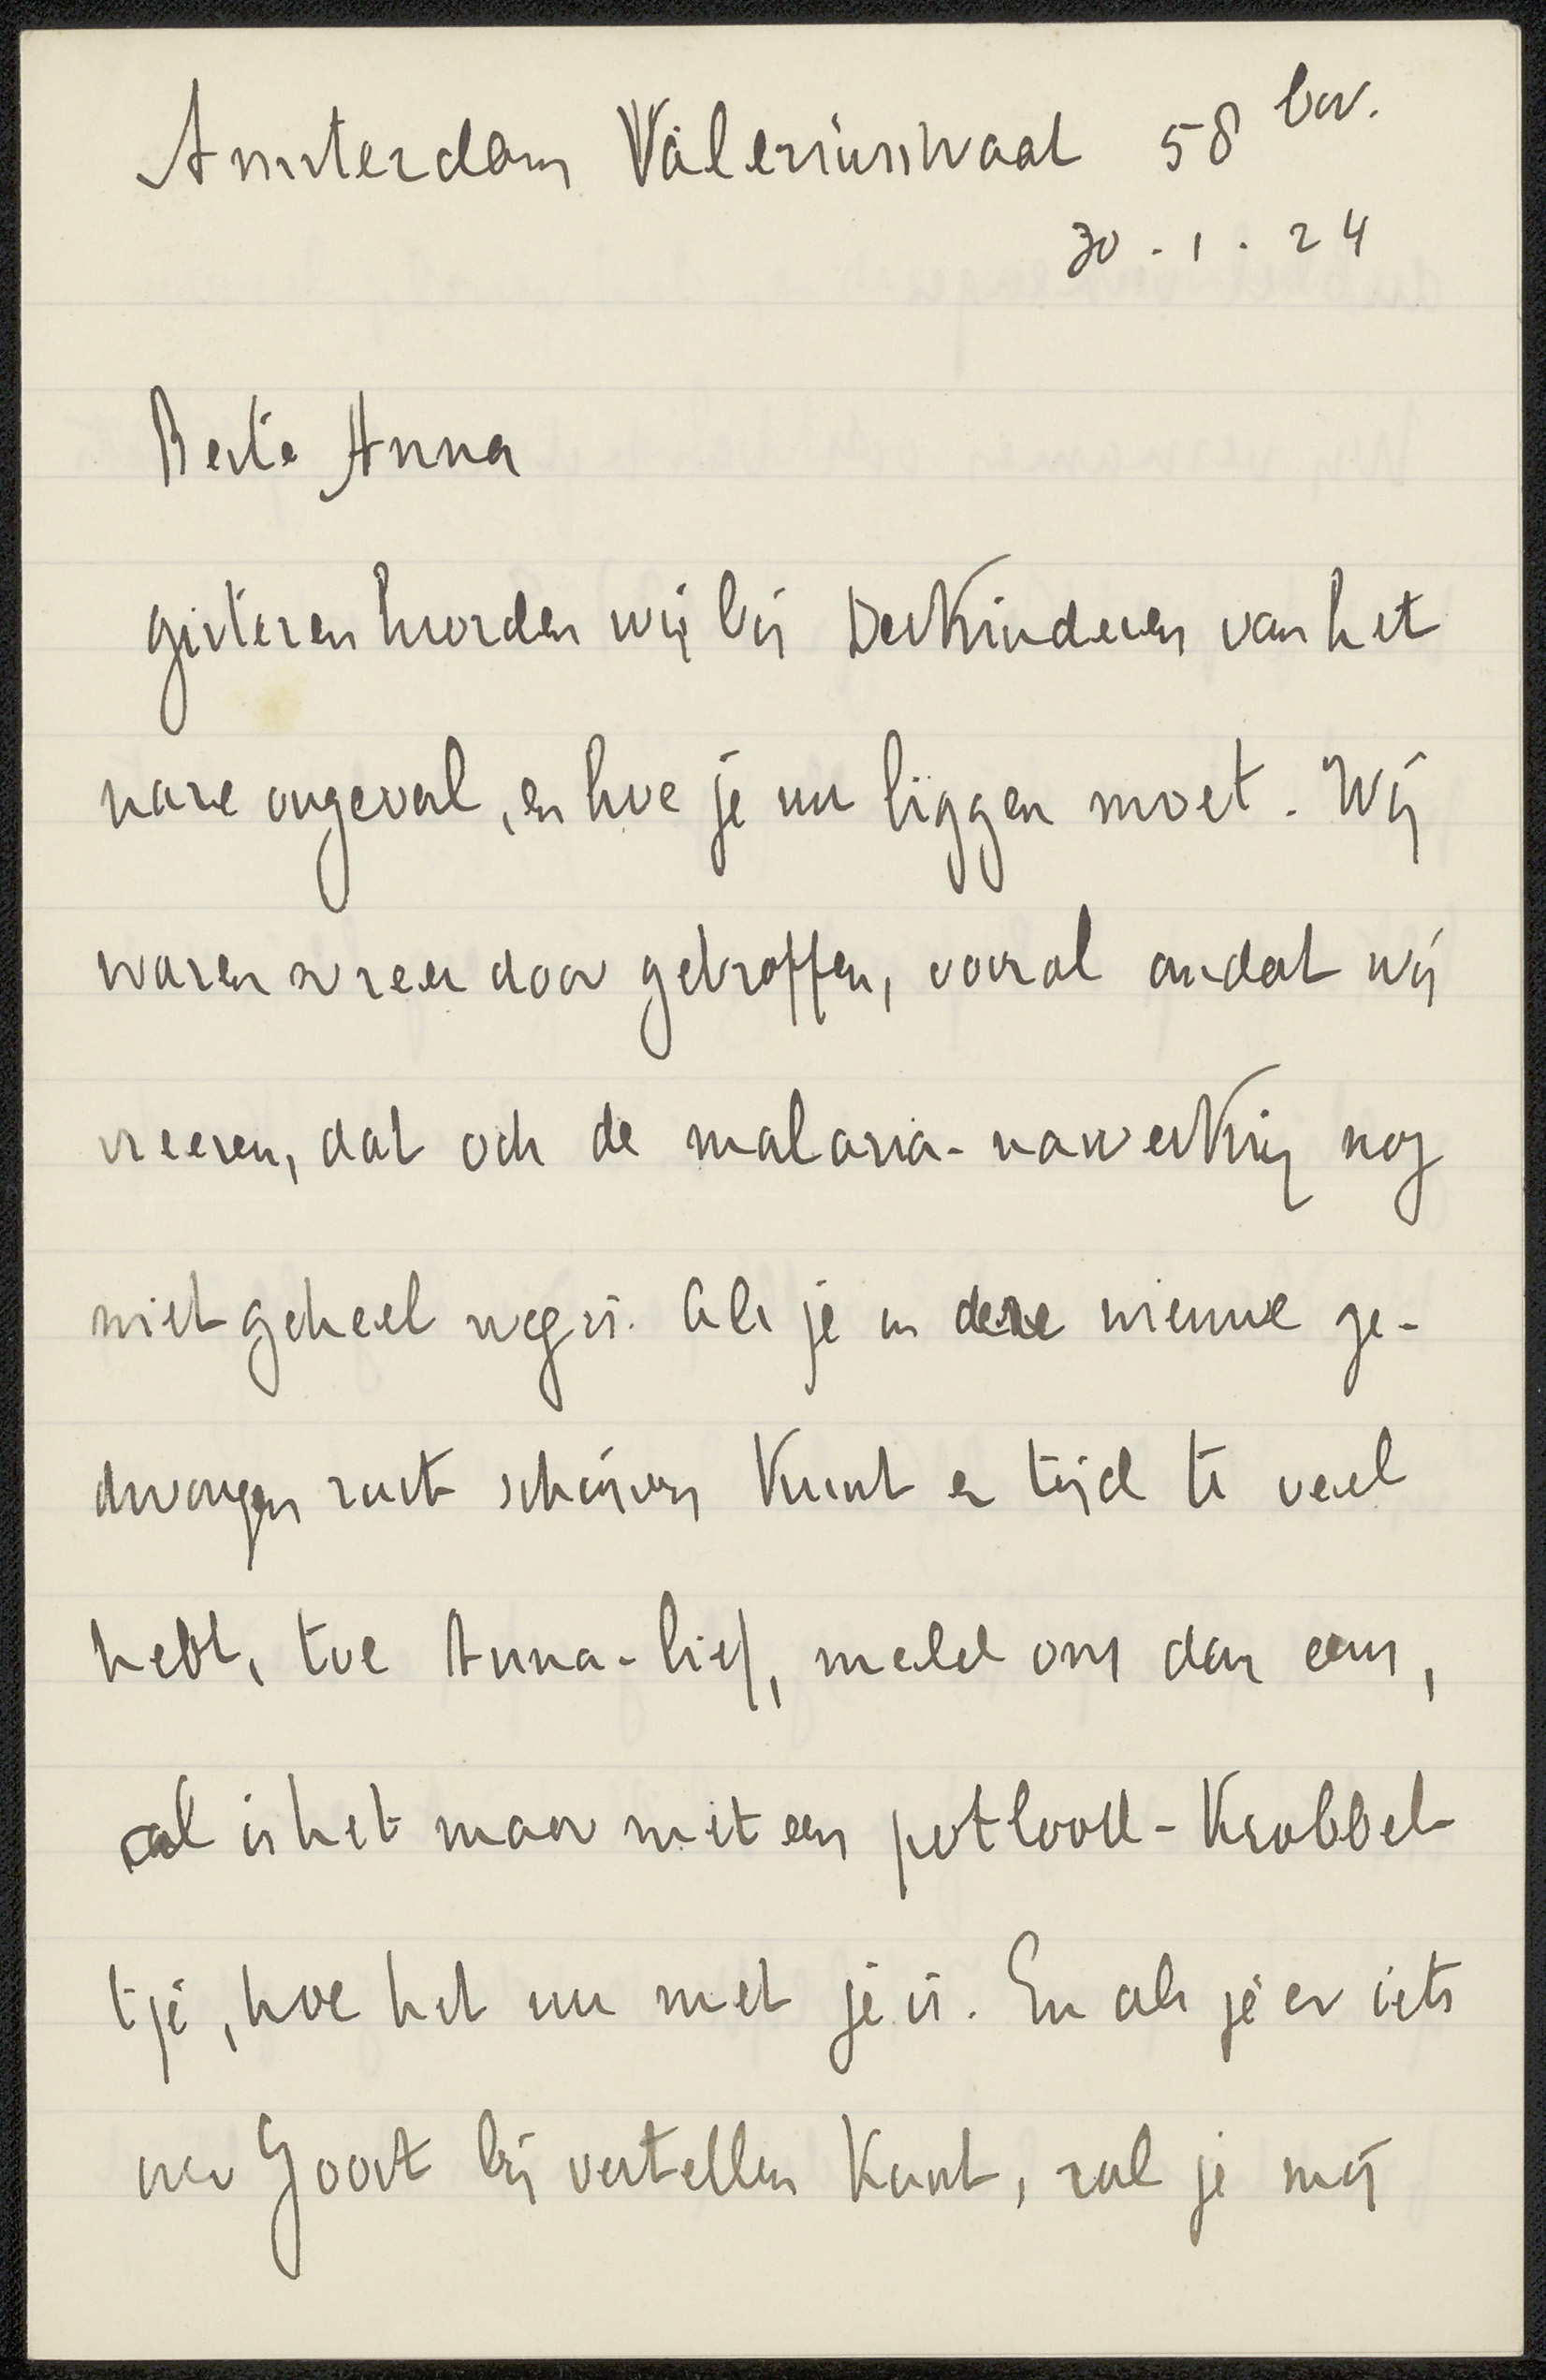 Amsterdam Valeriusstraat 58 bov.
30.1.24
Beste Anna
gisteren hoorden wij bij Derkinderen van het
nare ongeval, en hoe je nu liggen moet. Wij
waren zeer door getroffen, vooral omdat wij
vreezen, dat ook de malaria-nawerking nog
niet geheel weg is. Als je in deze nieuwe ge-
dwongen rust schrijven kunt en tijd te veel
hebt, toe Anna-lief, meld ons dan eens,
al is het maar met een potlood-krabbel-
tje, hoe het nu met je is. En als je er iets
over Goort bij vertellen kunt, zal je mij